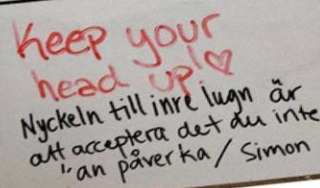 Keep your
head up! ♡
Nyckeln till inre lugn är
att acceptera det du inte
"an påverka / Simon